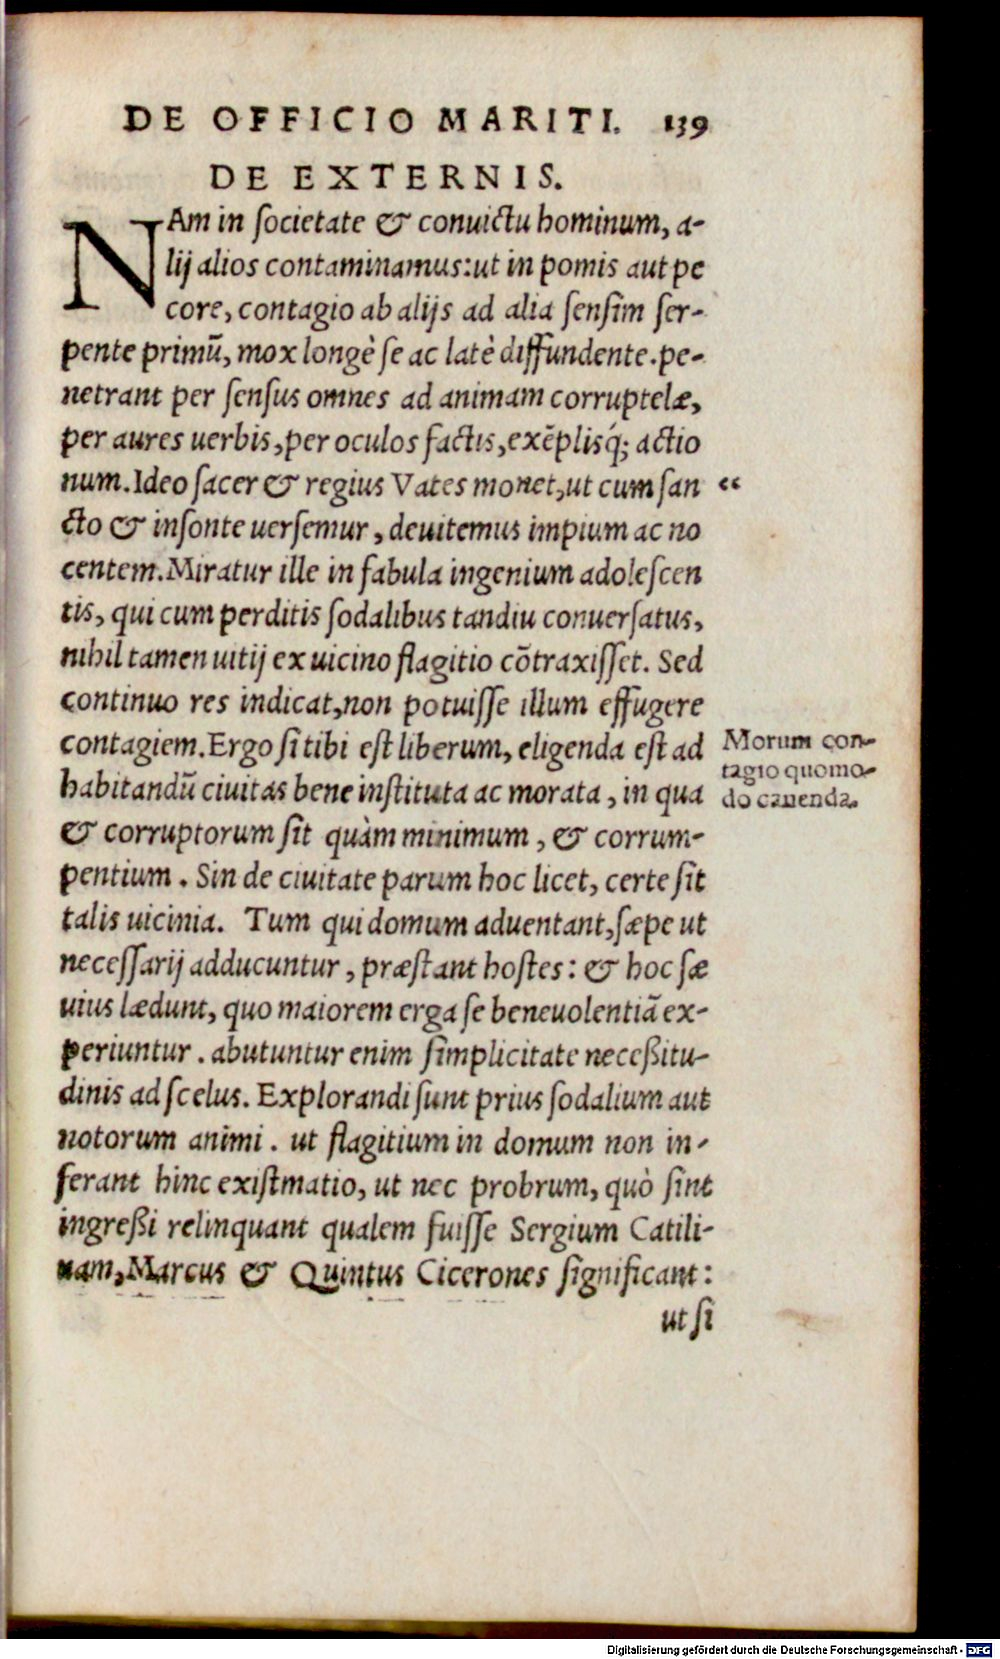 DE OFFICIO MARITI. 139
DE EXTERNIS.
NAm in ſocietate & conuictu hominum, a-
lij alios contaminamus: ut in pomis aut pe
core, contagio ab alijs ad alia ſenſim ſer-
pente primũ, mox longè ſe ac latè diffundente. pe-
netrant per ſenſus omnes ad animam corruptelæ,
per aures uerbis, per oculos factis, exẽplisq́; actio
num. Ideo ſacer & regius Vates monet, ut cum ſan “
cto & inſonte uerſemur, deuitemus impium ac no
centem. Miratur ille in fabula ingenium adoleſcen
tis, qui cum perditis ſodalibus tandiu conuerſatus,
nihil tamen uitij ex uicino flagitio cõtraxiſſet. Sed
continuo res indicat, non potuiſſe illum effugere
contagiem. Ergo ſi tibi eſt liberum, eligenda eſt ad
habitandũ ciuitas bene inſtituta ac morata, in qua
& corruptorum ſit quàm minimum, & corrum-
pentium. Sin de ciuitate parum hoc licet, certe ſit
talis uicinia. Tum qui domum aduentant, ſæpe ut
neceſſarij adducuntur, præſtant hoſtes: & hoc ſæ
uius lædunt, quo maiorem erga ſe beneuolentiã ex-
periuntur. abutuntur enim ſimplicitate neceßitu-
dinis ad ſcelus. Explorandi ſunt prius ſodalium aut
notorum animi. ut flagitium in domum non in-
ferant hinc exiſtmatio, ut nec probrum, quò ſint
ingreßi relinquant qualem fuiſſe Sergium Catili-
nam, Marcus & Quintus Cicerones ſignificant:
ut ſi
Morum con-
tagio quomo-
do cauenda.
Digitalisierung gefördert durch die Deutsche Forschungsgemeinschaft - DFG